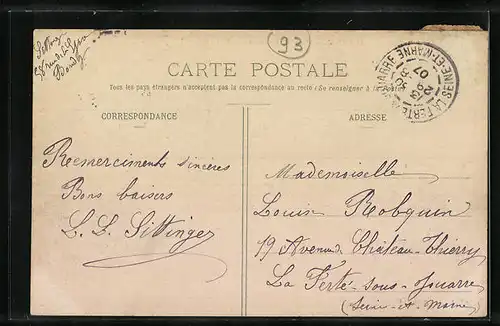 93
CARTE POSTALE
Tous les pays étrangers n'acceptent pas la correspondance au recto (Se renseigner à la poste)
CORRESPONDANCE
ADRESSE
Remerciments sincères
Bons baisers
L. L. Sittinger
Mademoiselle
Louise Robquin
19 Avenue Château-Thierry
La Ferté-sous-Jouarre
(Seine-et-Marne)